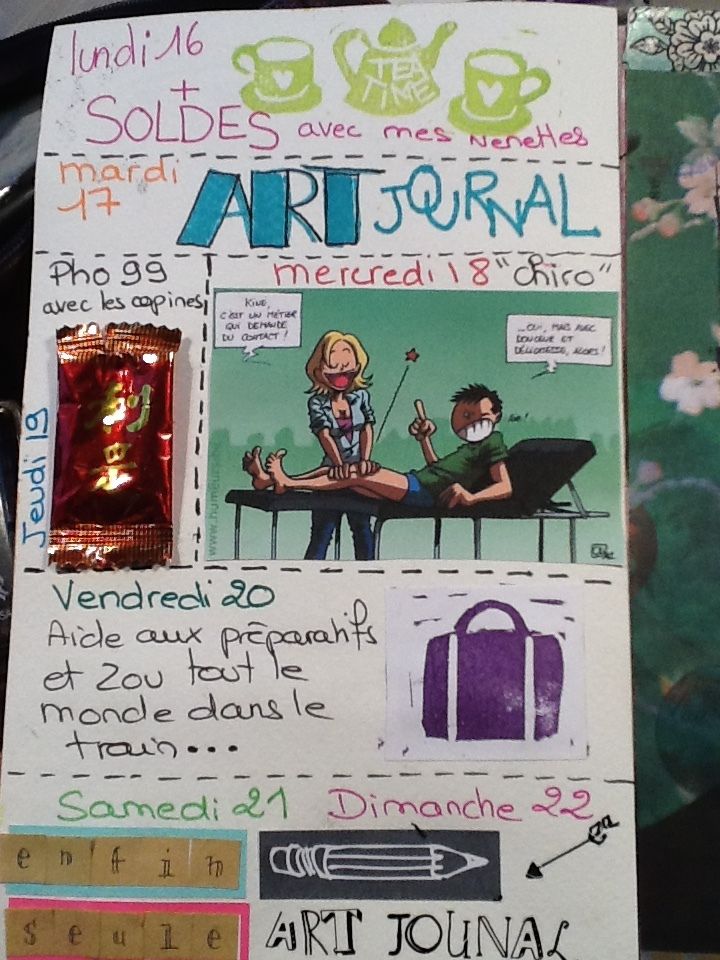 lundi 16
TEA
TIME
+
SOLDES avec mes Nenettes
mardi
17
ART JOURNAL
Pho 99
avec les copines
Jeudi 19
mercredi 18 "chiro"
KINÉ,
C'EST UN MÉTIER
QUI DEMANDE
DU CONTACT !
...OUI, MAIS AVEC
DOUCEUR ET
DÉLICATESSE, ALORS !
www.humeurs
Vendredi 20
Aide aux préparatifs
et Zou tout le
monde dans le
train...
Samedi 21
Dimanche 22
enfin
seule
ART JOUNAL